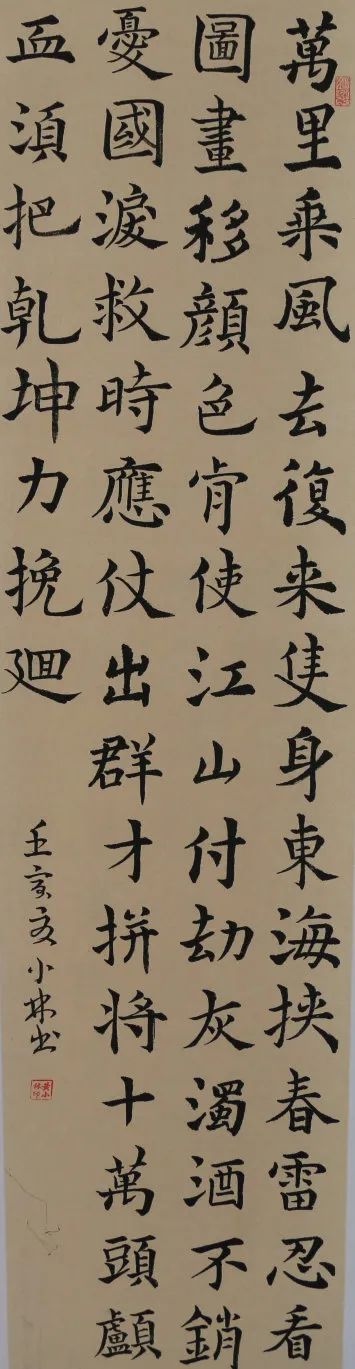 萬里乘風去復来隻身東海挾春雷忍看
圖畫移顔色肯使江山付劫灰濁酒不銷
憂國淚救時應仗出群才拼将十萬頭顱
血須把乾坤力挽廻
壬寅夏小林书
黄小林印